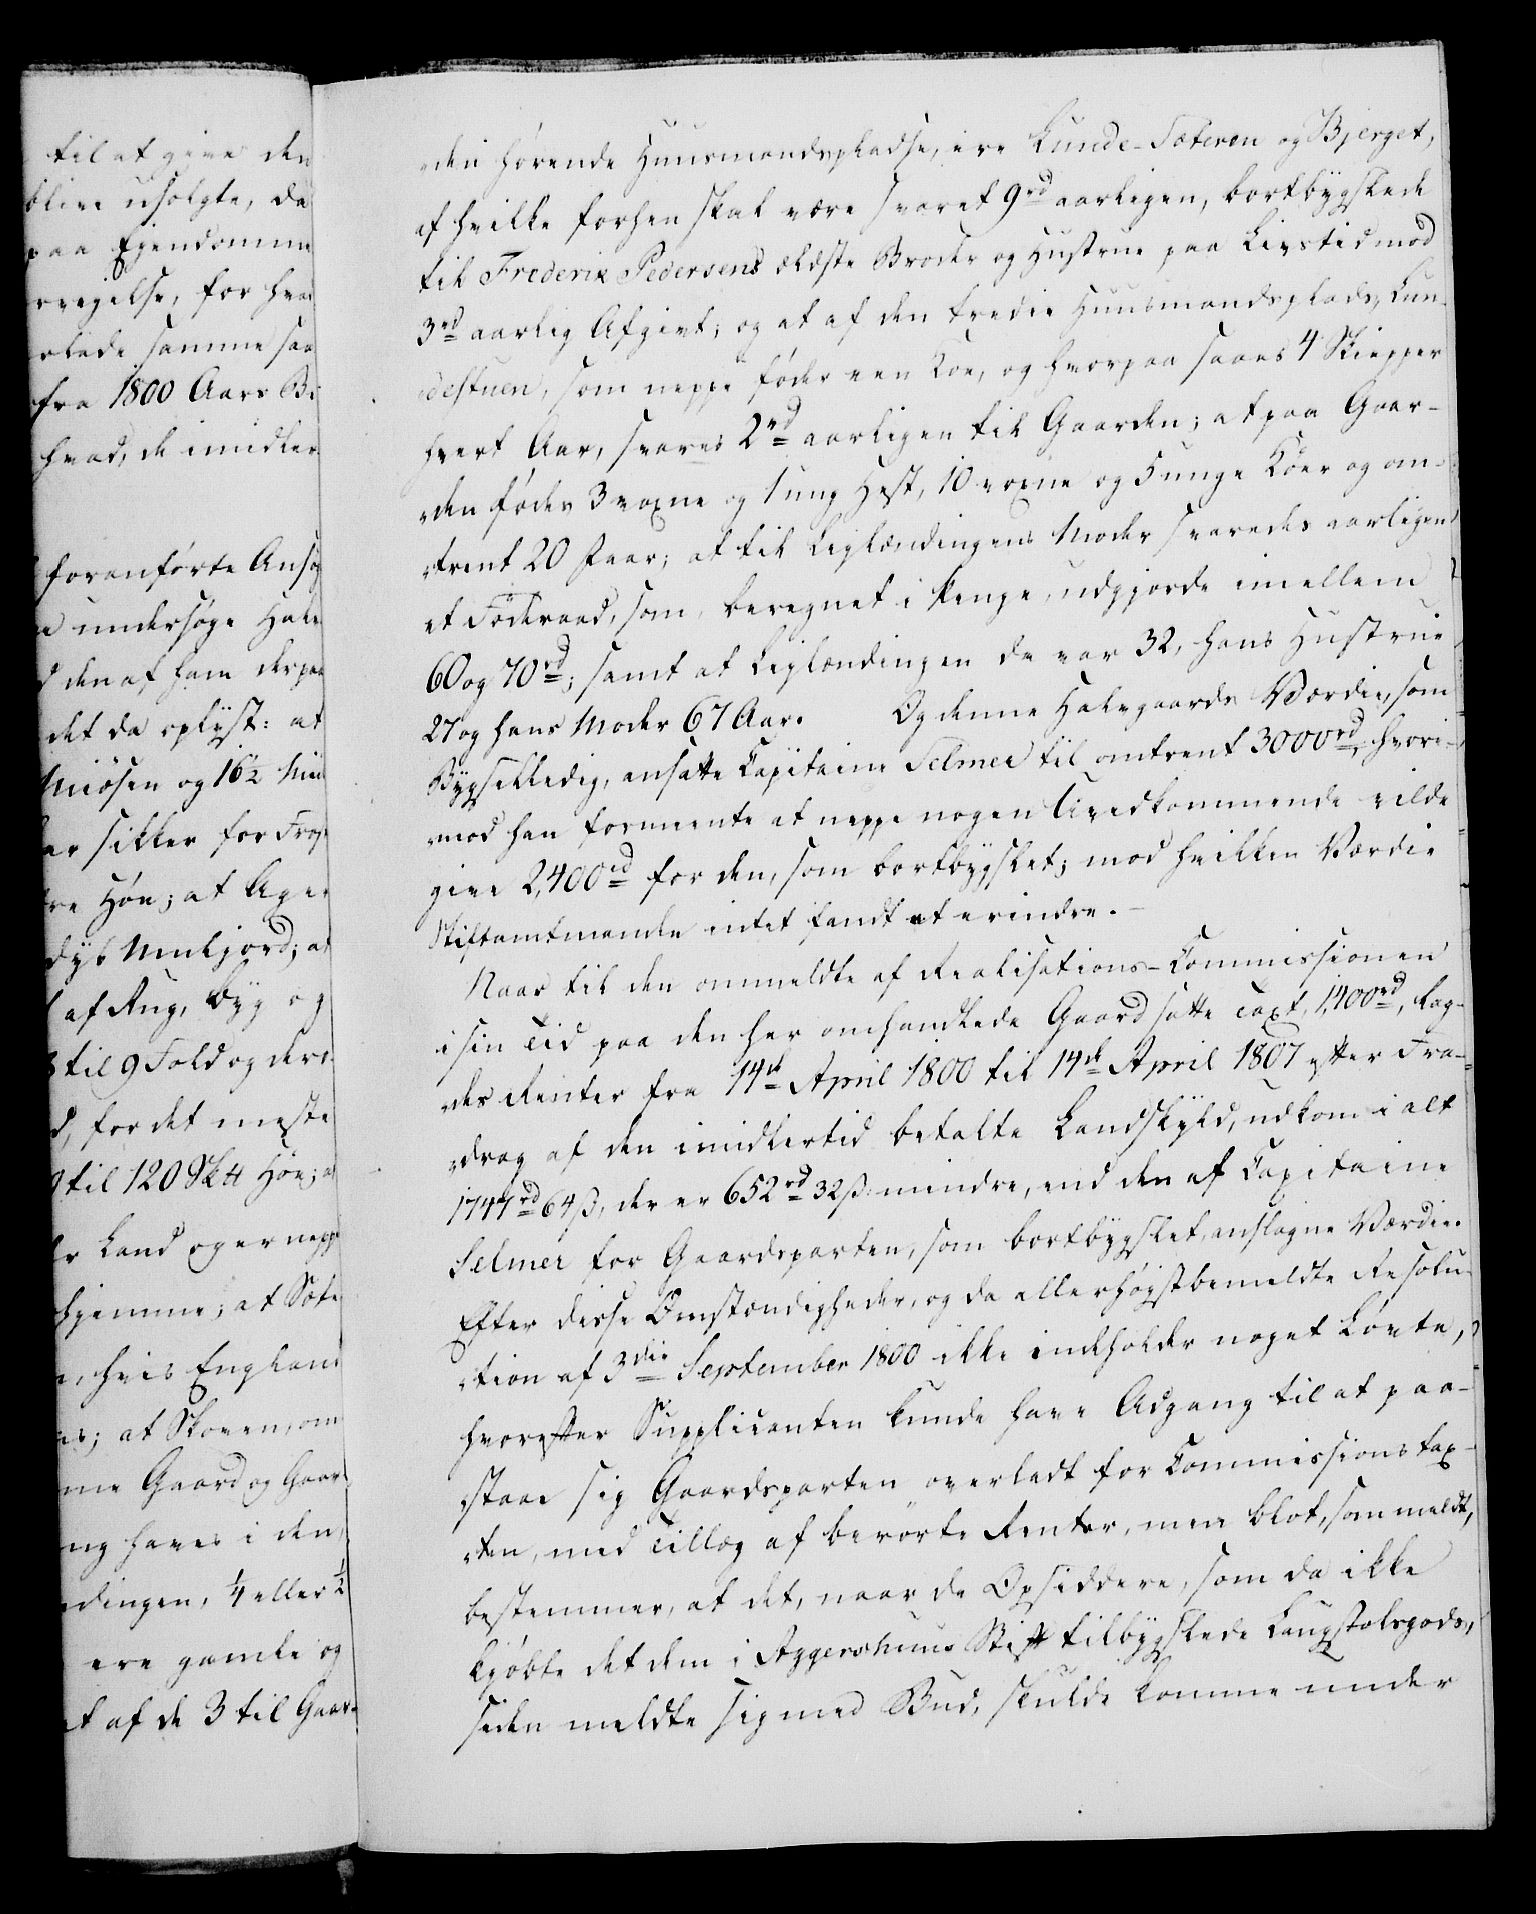 til at give den
blive usolgte, da
paa Ejendomme
rvejelse, for hva
rlade samme saa
fra 1800 Aars Be
hvad, de imidler
foranførte Ansø
e undersøge Halv
d den af ham derpaa
det da oplyst: at
Miøsen og 16½ Miil
er sikker for Frost
re Høe; at Ager
dyb Muldjord; at
af Rug, Byg og
8 til 9 Fold og der
d, for det meste
til 120 Sk℔ Høe; at
r Land og er neppe
hjemme; at Sæte
, hvis England
es; at Skoven, om
me Gaard og Gaar
ng haves i den,
dingen, ¼ eller ½
ere gamle og
t af de 3 til Gaar-
den hørende Huusmandspladse, ere Lunde-Sæteren og Bjerget,
af hvilke forhen skal være svaret 9rd aarligen, bortbygslede
til Frederik Pedersens ældste Broder og Hustrue paa Livstid mod
3rd aarlig Afgivt; og at af den tredie Huusmandsplads, Lun-
destuen, som neppe føder een Koe, og hvorpaa saaes 4 Skiepper
hvert Aar, svares 2rd aarligen til Gaarden; at paa Gaar-
den føder 3 voxne og 1 ung Hest, 10 voxne og 5 unge Køer og om-
trent 20 Faar; at til Leylændingens Moder svaredes aarligen
et Føderaad, som, beregnet i Penge, udgjorde imellem
60 og 70rd; samt at Leylændingen da var 32, hans Hustrue
27 og hans Moder 67 Aar. Og denne Halvgaards Værdie, som
Bygselledig, ansatte Capitaine Selmer til omtrent 3000rd, hvori-
mod han formeente at neppe nogen Uvedkommende vilde
give 2,400rd for den, som bortbygslet; mod hvilken Værdie
Stiftamtmanden intet fandt at erindre.-
Naar til den ommeldte af Realisations-Commissionen
i sin Tid paa den her omhandlede Gaard satte Taxt, 1,400rd, lag-
des Renter fra 14de April 1800 til 14de April 1807 efter Fra-
drag af den imidlertid betalte Landskyld, udkom i alt
1747rd 64ß, der er 652rd 32ß mindre, end den af Capitaine
Selmer for Gaardsparten, som bortbygslet, anslagne Værdie.
Efter disse Omstændigheder, og da allerhøystbemeldte Resolu-
tion af 3die September 1800 ikke indeholder noget Løvte,
hvorefter Supplicanten kunde have Adgang til at paa-
staae sig Gaardsparten overladt for Commissionstax-
ten, med Tillæg af berørte Renter, men blot, som meldt,
bestemmer, at det, naar de Opsiddere, som da ikke
kjøbte det dem i Aggershuus Stift tilbygslede Laugstolsgods,
siden meldte sig med Bud, skulde komme under